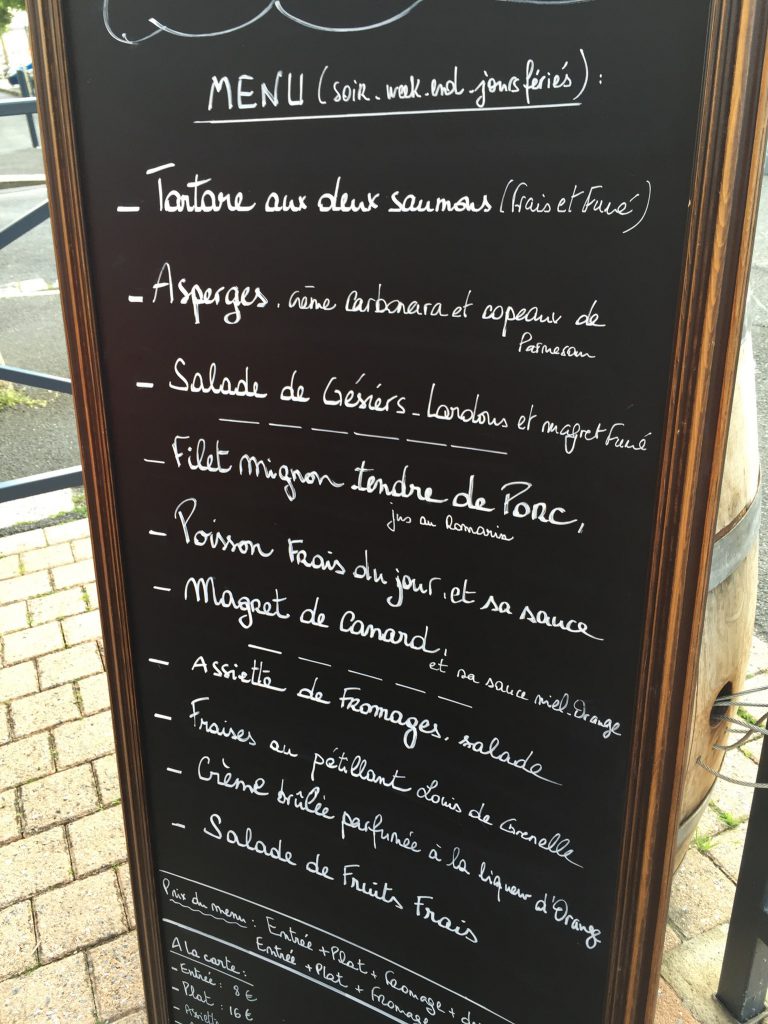 MENU (soir - week-end - jours fériés) :
- Tartare aux deux saumons (frais et Fumé)
- Asperges, crème carbonara et copeaux de
Parmesan
- Salade de Gésiers - Lardons et magret Fumé
- Filet mignon tendre de Porc,
jus au Romarin
- Poisson Frais du jour, et sa sauce
- Magret de Canard,
et sa sauce miel-Orange
- Assiette de Fromages, salade
- Fraises au pétillant Louis de Grenelle
- Crème brûlée parfumée à la liqueur d'Orange
- Salade de Fruits Frais
Prix du menu : Entrée + Plat + Fromage +
Entrée + Plat + Fromage
A la carte :
- Entrée : 8 €
- Plat : 16 €